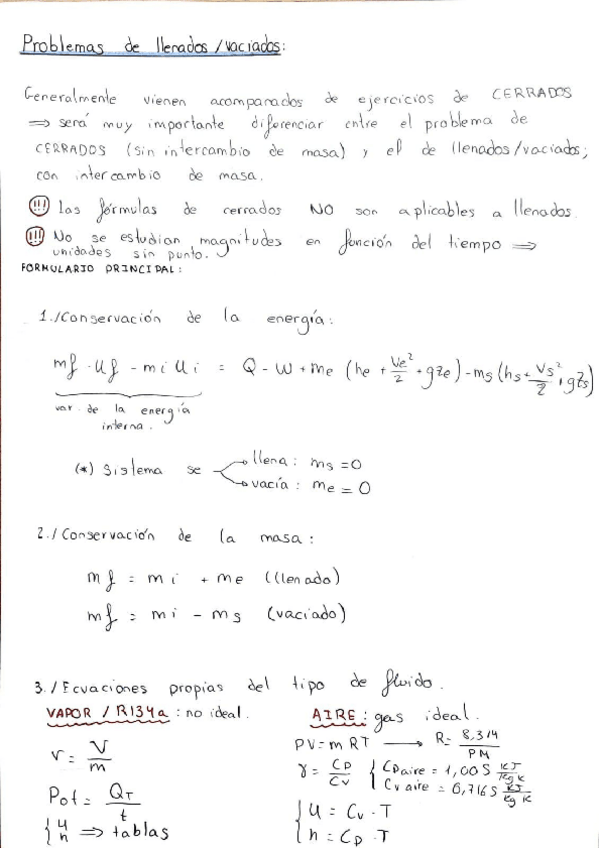 Problemas de llenados/vaciados:
Generalmente vienen acompañados de ejercicios de CERRADOS
⇒ será muy importante diferenciar entre el problema de
CERRADOS (sin intercambio de masa) y el de llenados/vaciados;
con intercambio de masa.
(!!!) Las fórmulas de cerrados NO son aplicables a llenados.
(!!!) No se estudian magnitudes en función del tiempo ⇒
unidades sin punto.
FORMULARIO PRINCIPAL:
1./Conservación de la energía:
mf · uf - mi ui = Q - W + me (he + Ve²/2 + gze) - ms (hs + Vs²/2 + gzs)
var. de la energía
interna.
(*) Sistema se → llena: ms = 0
→ vacía: me = 0
2./Conservación de la masa:
mf = mi + me (llenado)
mf = mi - ms (vaciado)
3./Ecuaciones propias del tipo de fluido.
VAPOR / R134a: no ideal.
v = V/m
Pot = QT/t
{ u h ⇒ tablas
AIRE: gas ideal.
PV = mRT → R = 8,314/PM
γ = CP/CV { CP aire = 1,005 KJ/Kg K
CV aire = 0,716 KJ/Kg K
{ U = CV · T
h = CP · T